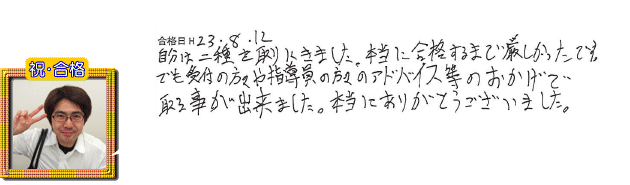 祝・合格
合格日H23.8.12
自分は二種を取りにきました。本当に合格するまで厳しかったです
でも受付の方々や指導員の方々のアドバイス等のおかげで
取る事が出来ました。本当にありがとうございました。